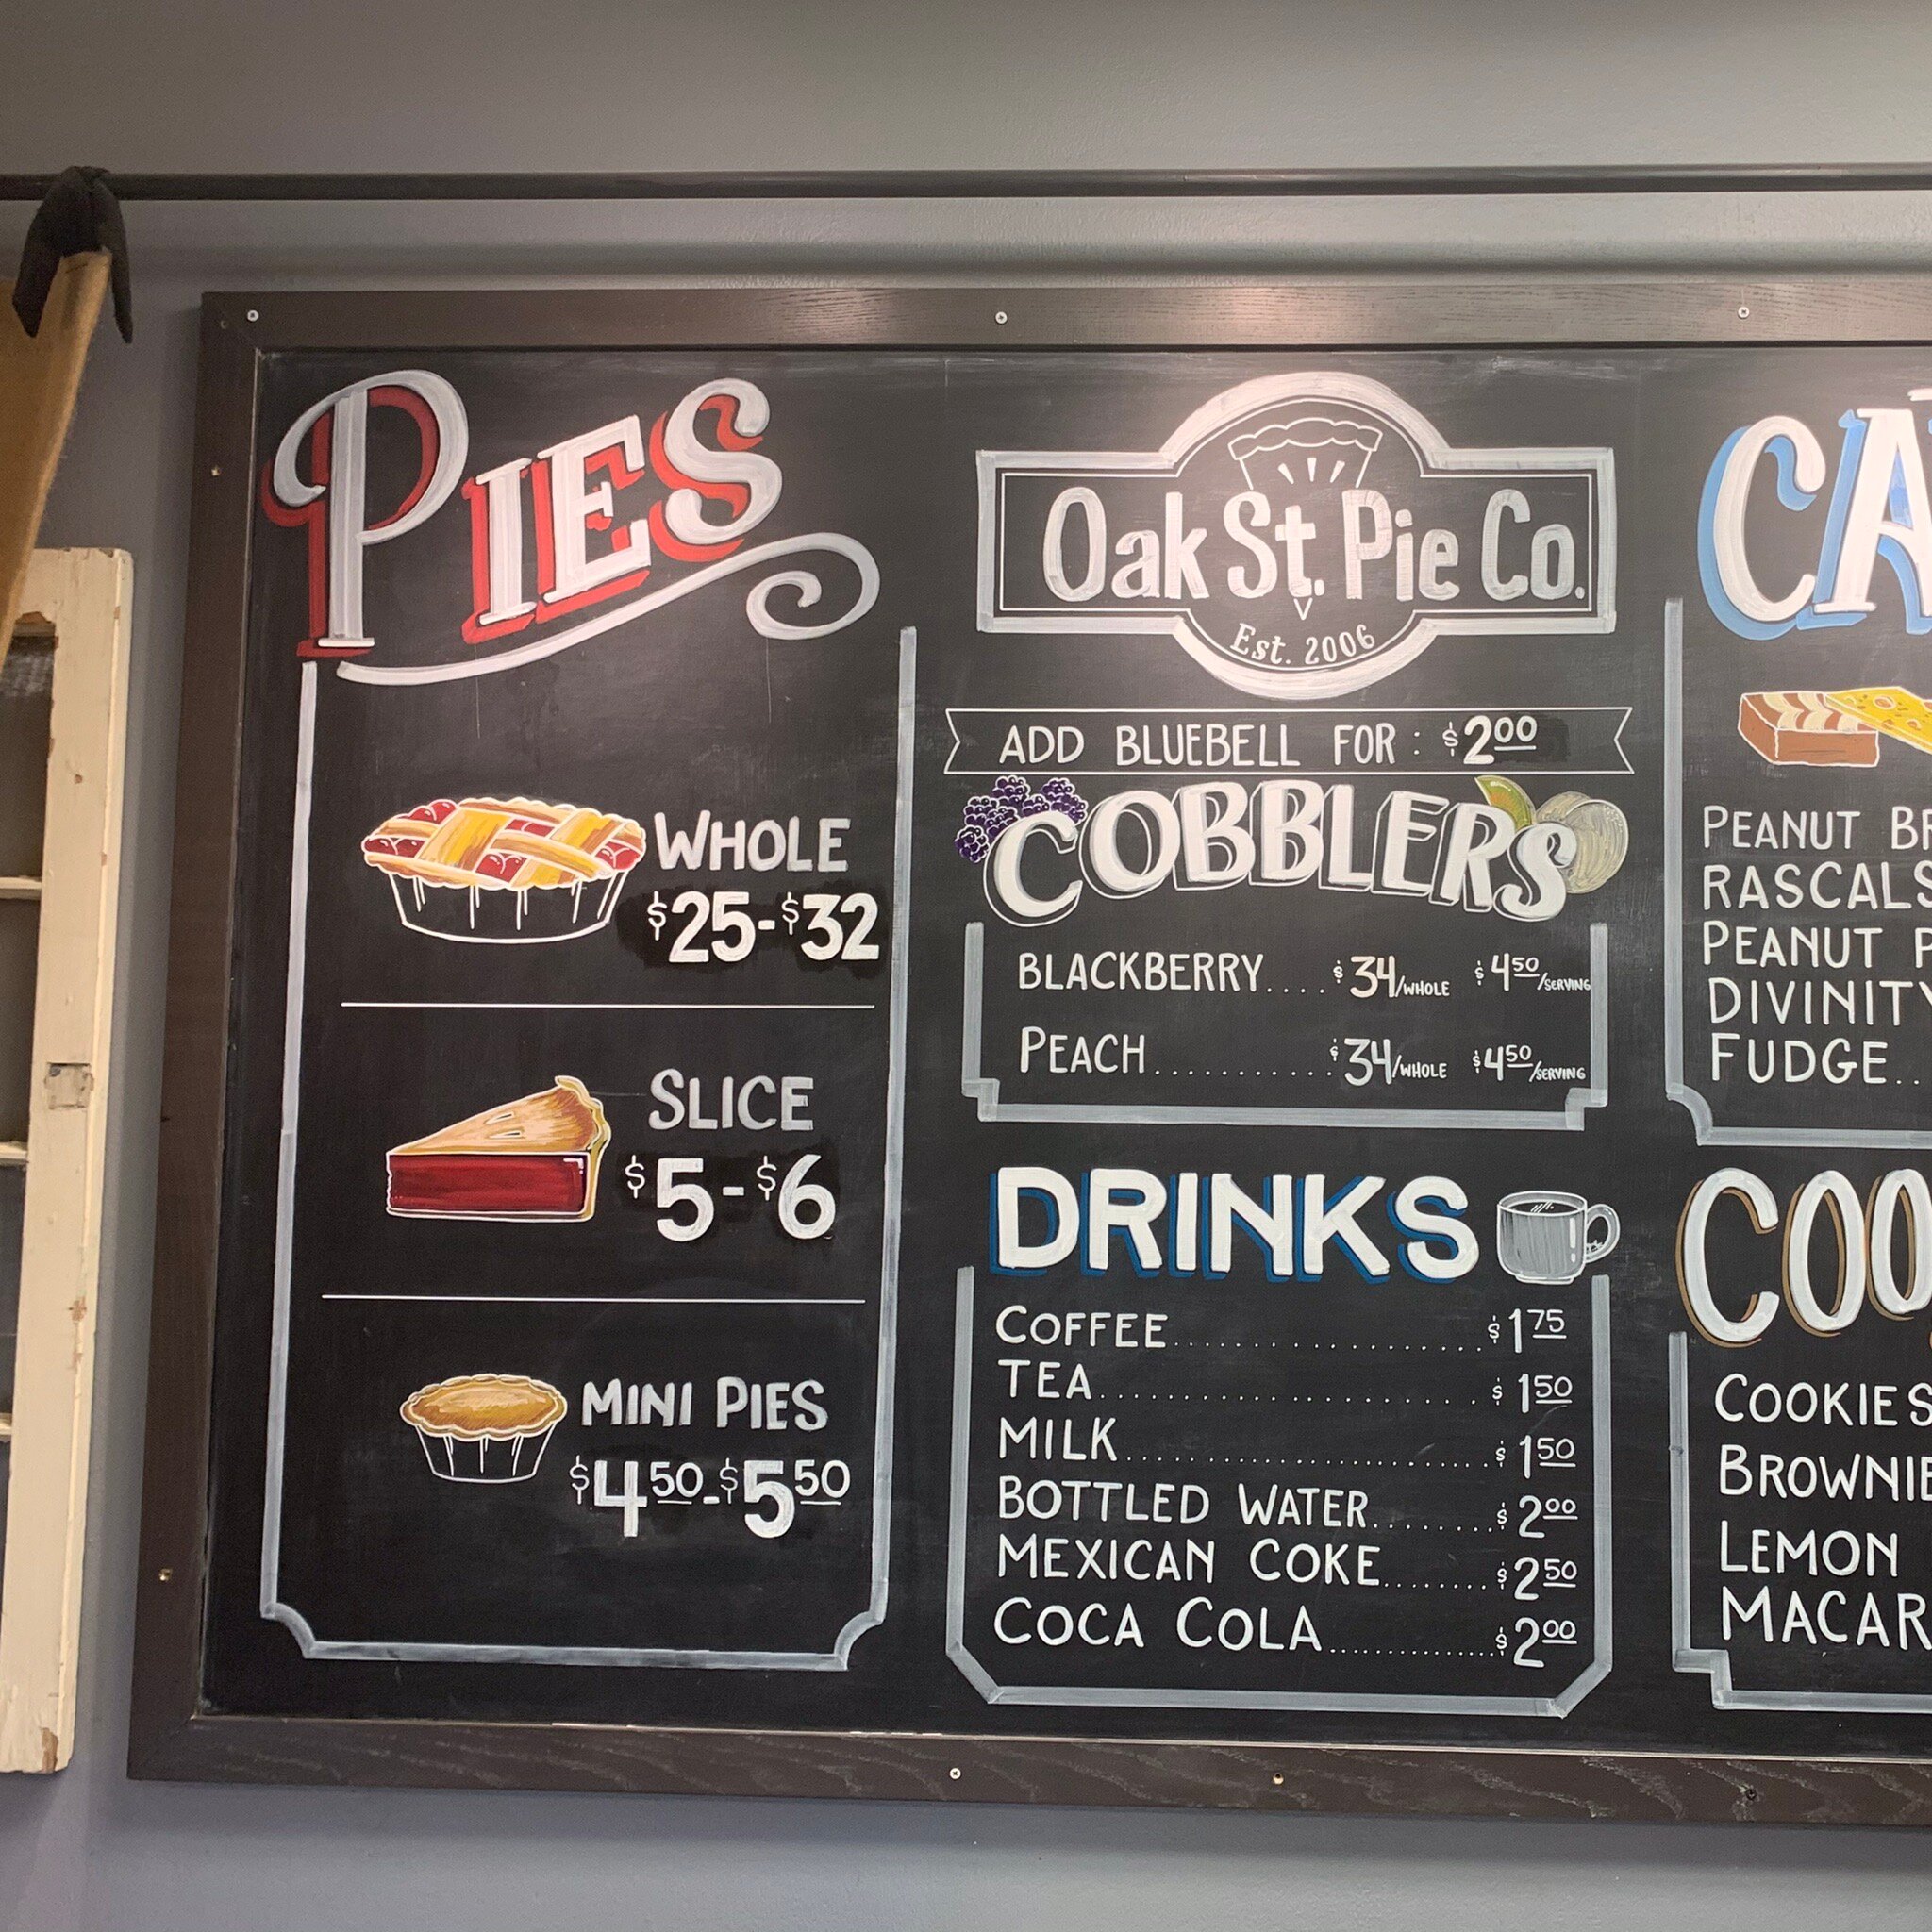 PIES
WHOLE
$25-$32
SLICE
$5-$6
MINI PIES
$4.50-$5.50
Oak St. Pie Co.
Est. 2006
ADD BLUEBELL FOR: $2.00
COBBLERS
BLACKBERRY....$34/WHOLE $4.50/SERVING
PEACH...........$34/WHOLE $4.50/SERVING
DRINKS
COFFEE...................$1.75
TEA...................$1.50
MILK...................$1.50
BOTTLED WATER........$2.00
MEXICAN COKE........$2.50
COCA COLA.............$2.00
CA
PEANUT
RASCALS
PEANUT
DIVINITY
FUDGE..
COO
COOKIES
BROWNIE
LEMON
MACAR